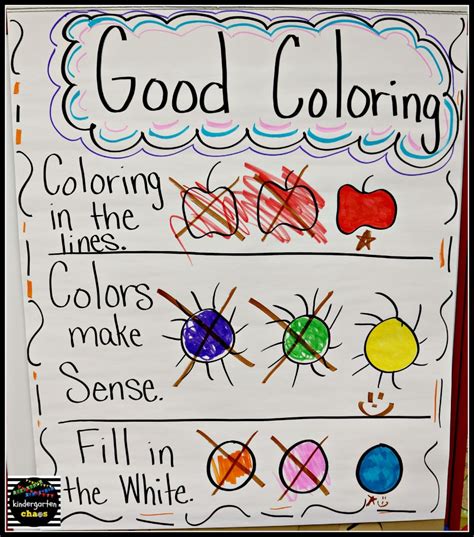 Good Coloring
Coloring
in the
lines.
Colors
make
Sense.
Fill in
the White.
kindergarten
chaos